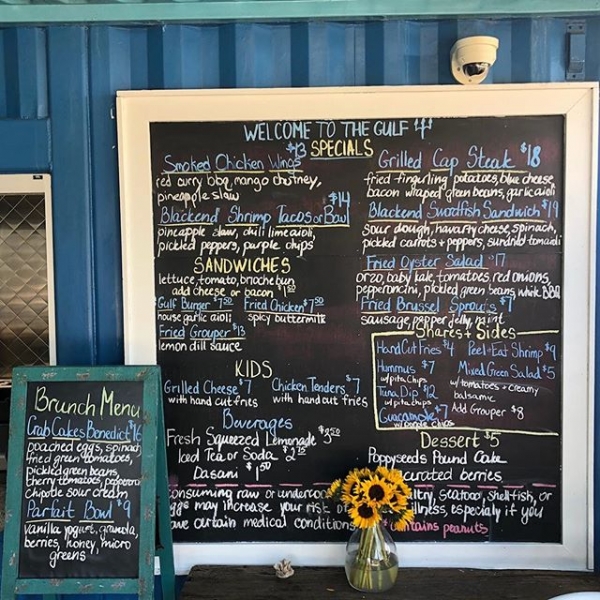 WELCOME TO THE GULF
SPECIALS
Smoked Chicken Wings $13
red curry bbq, mango chutney,
pineapple slaw
Blackend Shrimp Tacos or Bowl $14
pineapple slaw, chili lime aioli,
pickled peppers, purple chips
SANDWICHES
lettuce, tomato, brioche bun
add cheese or bacon
Gulf Burger $7.50
house garlic aioli
Fried Chicken $7.50
spicy buttermilk
Fried Grouper $13
lemon dill sauce
KIDS
Grilled Cheese $7
with hand cut fries
Chicken Tenders $7
with hand cut fries
Beverages
Fresh Squeezed Lemonade $3.50
Iced Tea or Soda
Dasani $1.50
Grilled Cap Steak $18
fried fingurling potatoes, blue cheese,
bacon wraped green beans, garlic aioli
Blackend Swordfish Sandwich $19
Sour dough, havarty cheese, spinach,
pickled carrots + peppers,
Fried Oyster Salad $17
orzo, baby kale, tomatoes, red onions,
pepperonchini, pickled green beans, white BBQ
Fried Brussel Sprouts $7
sausage, pepper jelly, mint
Shares + Sides
Hand Cut Fries $4
Hummus $7
w/ pita chips
Tuna Dip $12
w/ pita chips
Guacamole $7
w/ purple chips
Peel + Eat Shrimp $9
Mixed Green Salad $5
w/ tomatoes + creamy
balsamic
Add Grouper $8
Dessert $5
Poppyseeds Pound Cake
berries
consuming raw or seafood, shellfish, or
may increase your risk of illness, especially if you
have certain medical conditions *contains peanuts
Brunch Menu
Crab Cakes Benedict $16
poached eggs, spinach
fried green tomatoes,
pickled green beans,
cherry tomatoes,
chipotle sour cream
Parfait Bowl $9
vanilla yogurt, granola,
berries, honey, micro
greens